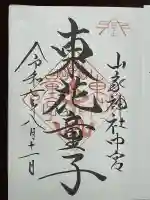 山家神社中宮
東花童子
令和七年八月十一日